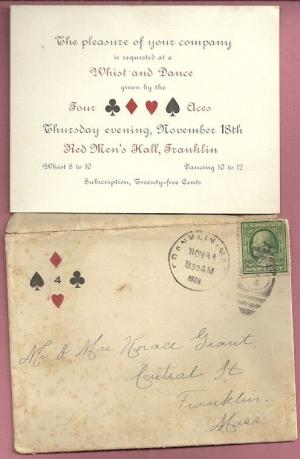 The pleasure of your company
is requested at a
Whist and Dance
given by the
Four ♣♦♥♠ Aces
Thursday evening, November 18th
Red Men's Hall, Franklin
Whist 8 to 10 Dancing 10 to 12
Subscription, Twenty-five Cents
4
FRANKLIN
NOV
830AM
1909
Mr & Mrs Horace Grant,
Central St
Franklin
Mass.